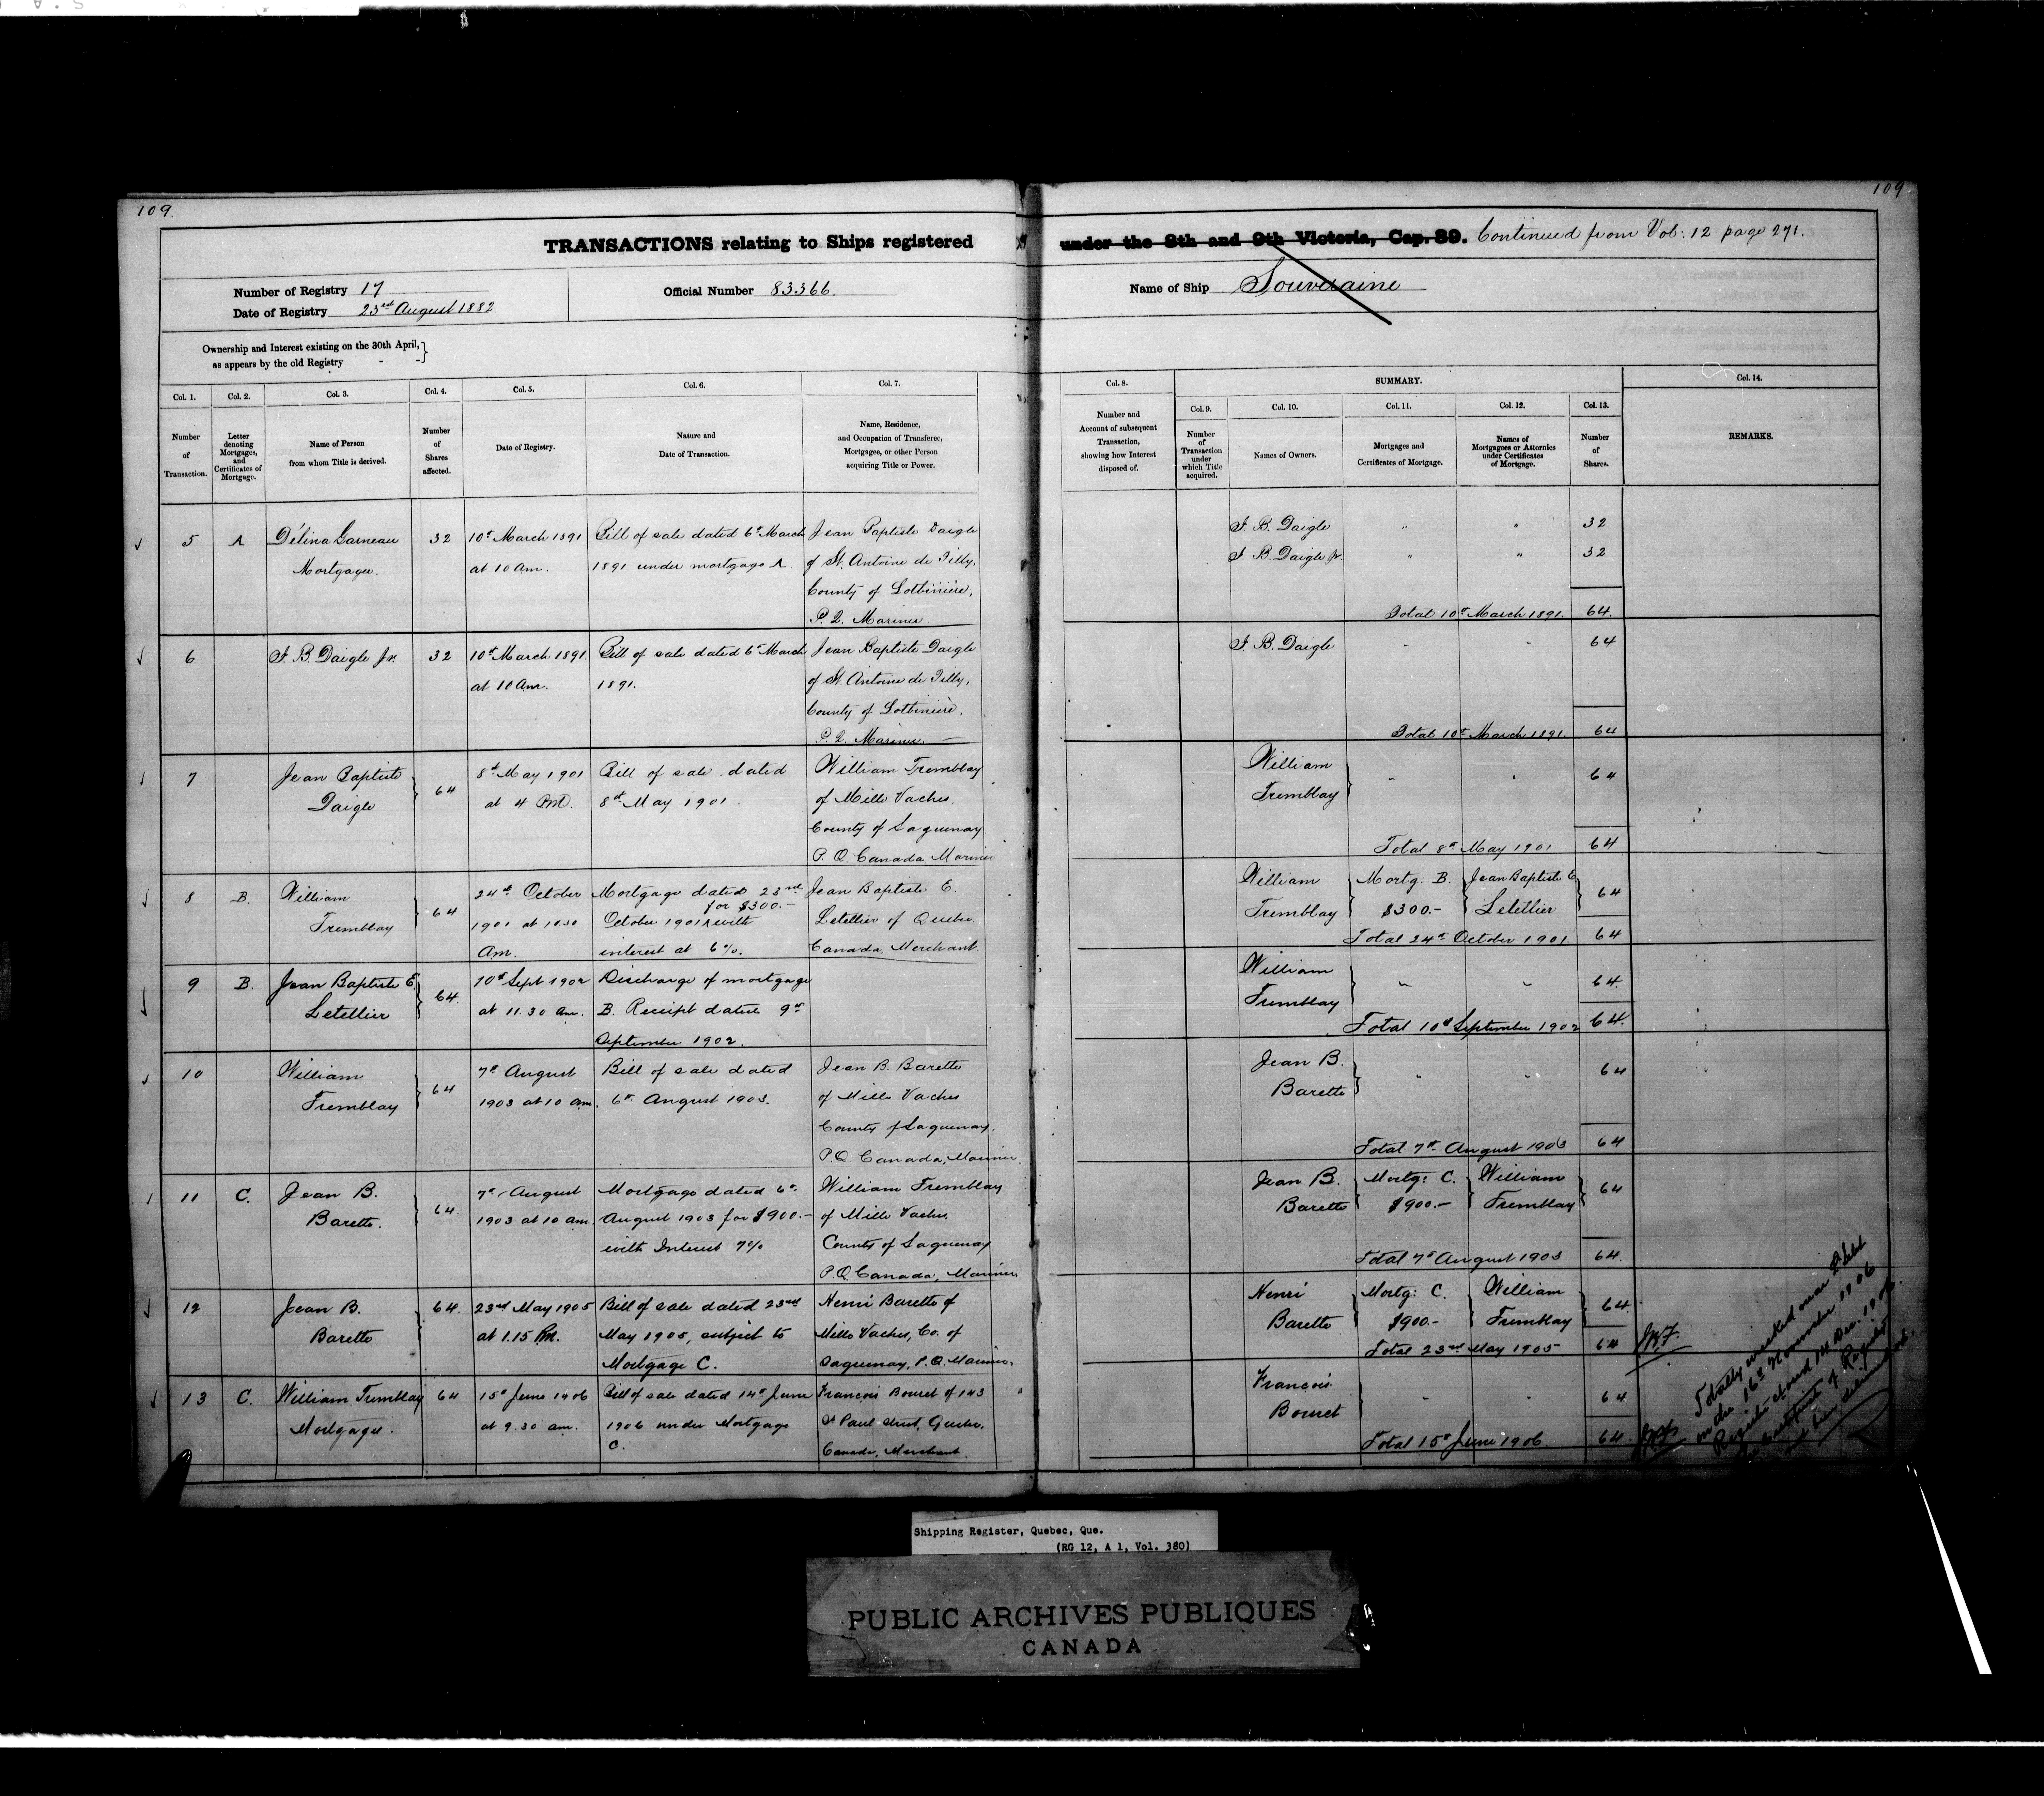 109.
109
TRANSACTIONS relating to Ships registered under the 8th and 9th Victoria, Cap. 89. Continued from Vol: 12 page 271.
Number of Registry 17
Date of Registry 23rd August 1882
Official Number 83366.
Name of Ship Souveraine
Ownership and Interest existing on the 30th April,
as appears by the old Registry - -
Col. 1.
Number
of
Transaction.
Col. 2.
Letter
denoting
Mortgages,
and
Certificates of
Mortgage.
Col. 3.
Name of Person
from whom Title is derived.
Col. 4.
Number
of
Shares
affected.
Col. 5.
Date of Registry.
Col. 6.
Nature and
Date of Transaction.
Col. 7.
Name, Residence,
and Occupation of Transferee,
Mortgagee, or other Person
acquiring Title or Power.
Col. 8.
Number and
Account of subsequent
Transaction,
showing how Interest
disposed of.
SUMMARY.
Col. 9.
Number
of
Transaction
under
which Title
acquired.
Col. 10.
Names of Owners.
Col. 11.
Mortgages and
Certificates of Mortgage.
Col. 12.
Names of
Mortgagees or Attornies
under Certificates
of Mortgage.
Col. 13.
Number
of
Shares.
Col. 14.
REMARKS.
5
A
Délina Garneau
Mortgagee.
32
10th March 1891
at 10 am.
Bill of sale dated 6th March
1891 under mortgage A.
Jean Baptiste Daigle
of St. Antoine de Tilly,
County of Lotbinière,
P. Q. Mariner.
J. B. Daigle " " 32
J. B. Daigle Jr. " " 32
Total 10th March 1891. 64.
6
J. B. Daigle Jr.
32
10th March 1891.
at 10 am.
Bill of sale dated 6th March
1891.
Jean Baptiste Daigle
of St. Antoine de Tilly,
County of Lotbinière,
P. Q. Mariner. —
J. B. Daigle " " 64
Total 10th March 1891. 64
7
Jean Baptiste
Daigle
64
8th May 1901
at 4 PM.
Bill of sale dated
8th May 1901.
William Tremblay
of Mille Vaches.
County of Saguenay
P. Q. Canada Mariner
William
Tremblay
" " 64
Total 8th May 1901 64
8
B.
William
Tremblay
64
24th October
1901 at 10.30
Am.
Mortgage dated 23rd
for $300.-
October 1901 with
interest at 6%.
Jean Baptiste E.
Letellier of Quebec
Canada, Merchant.
William
Tremblay
Mortg: B.
$300.-
Jean Baptiste E
Letellier
64
Total 24th October 1901. 64
9
B.
Jean Baptiste E.
Letellier
64.
10th Sept 1902
at 11.30 am.
Discharge of mortgage
B. Receipt dated 9th
September 1902.
William
Tremblay
" " 64.
Total 10th September 1902 64.
10
William
Tremblay
64
7th August
1903 at 10 am.
Bill of sale dated
6th August 1903.
Jean B. Barette
of Mille Vaches
County of Saguenay.
P.Q. Canada, Mariner.
Jean B.
Barette
" " 64
Total 7th August 1903 64
11
C.
Jean B.
Barette.
64.
7th August
1903 at 10 am.
Mortgage dated 6th
August 1903 for $900.-
with Interest 7%
William Tremblay
of Mille Vaches
County of Saguenay
P.Q. Canada, Mariner
Jean B.
Barette
Mortg: C.
$900.-
William
Tremblay
64
Total 7th August 1903 64.
12
Jean B.
Barette
64.
23rd May 1905
at 1.15 PM.
Bill of sale dated 23rd
May 1905, subject to
Mortgage C.
Henri Barette of
Mille Vaches, Co. of
Saguenay, P.Q. Mariner.
Henri
Barette
Mortg: C.
$900.-
William
Tremblay
64.
Total 23rd May 1905 64
13
C.
William Tremblay
Mortgagee.
64
15th June 1906
at 9.30 am.
Bill of sale dated 14th June
1906 under Mortgage
C.
François Bouret of 143
St Paul Street, Quebec,
Canada, Merchant.
François
Bouret
" " 64
Total 15th June 1906. 64.
Totally wrecked near
on the 16th November 1906
Register closed 14 Dec. 1906.
Certificate of Registry
Shipping Register, Quebec, Que.
(RG 12, A 1, Vol. 380)
PUBLIC ARCHIVES PUBLIQUES
CANADA